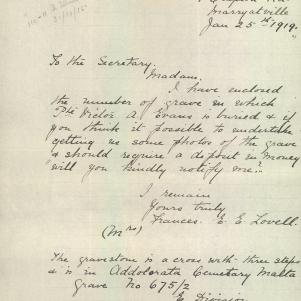 Marryatville
Jan 25th 1919.
To the Secretary.
Madam.
I have enclosed
the number of grave in which
Pte Victor A. Evans is buried & if
you think it possible to undertake
getting us some photos of the grave
& should require a deposit in money
will you kindly notify me.
I remain
Yours truly
Frances. E. E. Lovell.
(Mrs)
The gravestone is a cross with three steps
& is in Addolorata Cemetary Malta
Grave No 675/2
E Division